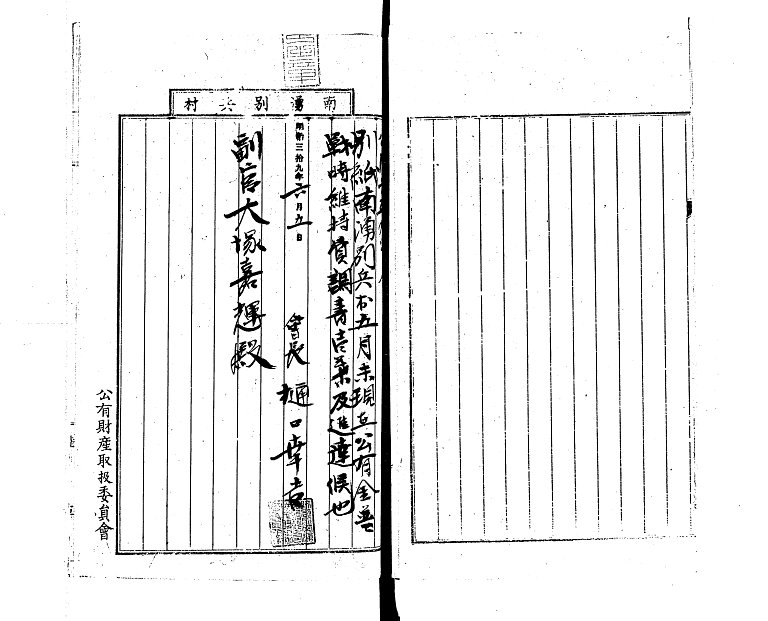 南湧別兵村
別紙南湧別兵村五月末現在公有金並
戦時維持貸調書壱葉及進達候也
明治三拾九年六月五日
會長 樋口幸吉
副官大塚嘉輝殿
公有財産取扱委員會